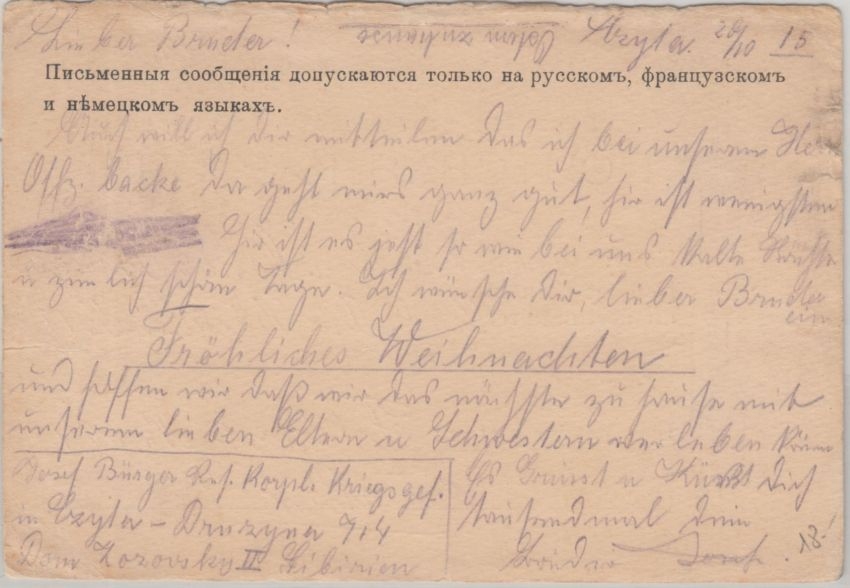 Lieber Bruder! Czyta. 26/10 15
Письменныя сообщенія допускаются только на русскомъ, французскомъ
и нѣмецкомъ языкахъ.
Auch will ich dir mitteilen das ich bei unserem
Offz. backe da geht mirs ganz gut, hir ist wenigsten
Hir ist es jetzt so wie bei uns kalte Nächte
u zimlich schöne Tage. Ich wünsche Dir, lieber Bruder
ein
Fröhliches Weihnachten
und hoffen wir daß wir das nächste zu hause mit
unseren lieben Eltern u Schwestern verleben können
Josef Bürger Res. Korpl. Kriegsgef.
in Czyta – Druzyna 704
Dom Zozovsky II Sibirien
Es Grüsst u Küßt Dich
tausendmal dein
Bruder Josef.
18.-